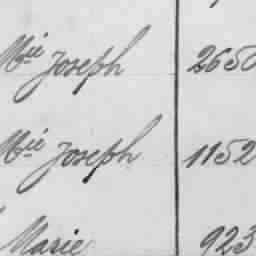 Mie Joseph 2650
Mie Joseph 1152
Marie 923